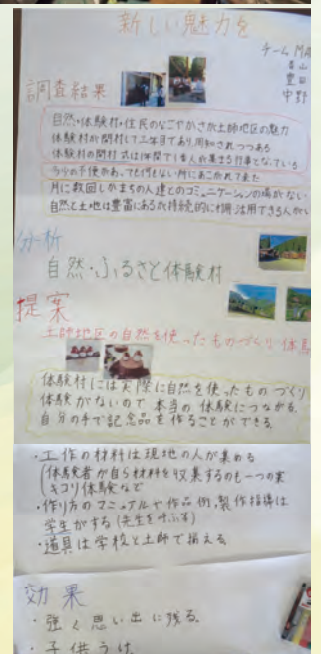 新しい魅力を
チームMA
畠山
豊田
中野
調査結果
自然・体験村・住民のなごやかさが土師地区の魅力
体験村が開村して三年目であり周知されつつある
体験村の開村式は1年間で1番人が集まる行事となっている
月に数回しかまちの人達とのコミュニケーションの場がない
自然と土地は豊富にあるが持続的に 活用できる人がい
分析
自然・ふるさと体験村
提案
土師地区の自然を使ったものづくり体馬
体験村には実際に自然を使ったものづくり
体験がないので、本当の体験につながる。
自分の手で記念品を作ることができる。
・工作の材料は現地の人が集める
(体験者が自ら材料を収集するのも一つの案
キコリ体験など
・作り方のマニュアルや作品例、製作指導は
学生がする(先生を呼ぶ等)
・道具は学校と土師で揃える
効果
・強く思い出に残る。
・子供うけ